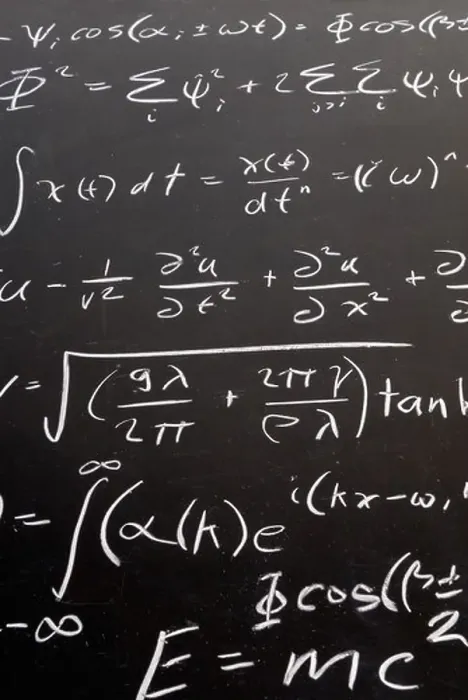 - ψᵢ cos(αᵢ ± ωt) = Φ cos(β±
Φ² = Σᵢ ψᵢ² + 2 Σⱼ>ᵢ Σᵢ ψᵢ ψ
∫ x(t) dt = x(t)/dtⁿ = (iω)ⁿ
u - 1/v² ∂²u/∂t² + ∂²u/∂x² + ∂
= √(gλ/2π + 2πγ/ρλ) tanh
) = ∫_{-∞}^{∞} (α(k) e^{i(kx-ω,
Φ cos(β±
E = mc²